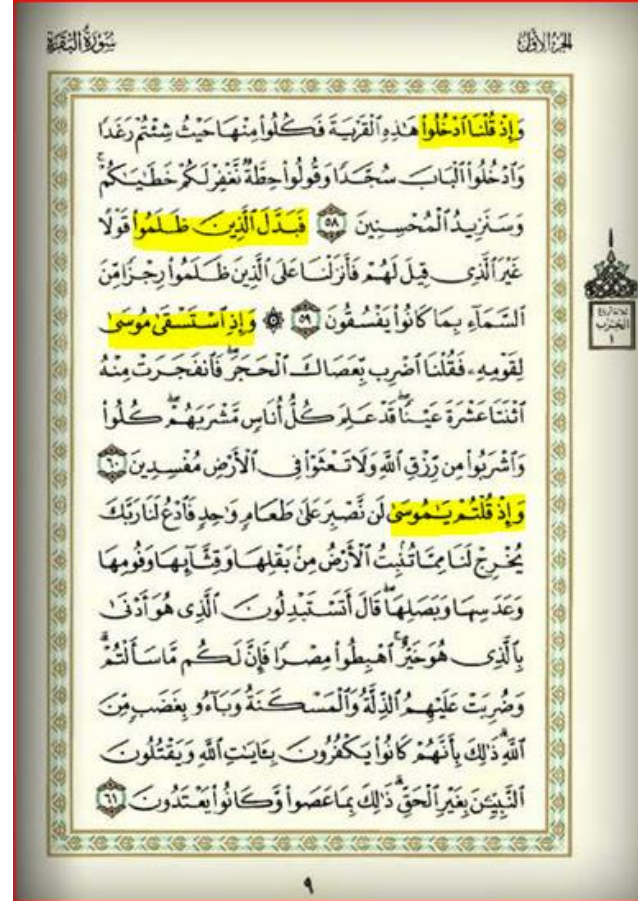 سُورَةُ البَقَرَةِ
الجزء الأول
وَإِذْ قُلْنَا ٱدْخُلُوا۟ هَـٰذِهِ ٱلْقَرْيَةَ فَكُلُوا۟ مِنْهَا حَيْثُ شِئْتُمْ رَغَدًا
وَٱدْخُلُوا۟ ٱلْبَابَ سُجَّدًا وَقُولُوا۟ حِطَّةٌ نَّغْفِرْ لَكُمْ خَطَـٰيَـٰكُمْ ۚ
وَسَنَزِيدُ ٱلْمُحْسِنِينَ ٥٨ فَبَدَّلَ ٱلَّذِينَ ظَلَمُوا۟ قَوْلًا
غَيْرَ ٱلَّذِى قِيلَ لَهُمْ فَأَنزَلْنَا عَلَى ٱلَّذِينَ ظَلَمُوا۟ رِجْزًا مِّنَ
ٱلسَّمَآءِ بِمَا كَانُوا۟ يَفْسُقُونَ ٥٩ ۞ وَإِذِ ٱسْتَسْقَىٰ مُوسَىٰ
لِقَوْمِهِۦ فَقُلْنَا ٱضْرِب بِّعَصَاكَ ٱلْحَجَرَ ۖ فَٱنفَجَرَتْ مِنْهُ
ٱثْنَتَا عَشْرَةَ عَيْنًا ۖ قَدْ عَلِمَ كُلُّ أُنَاسٍ مَّشْرَبَهُمْ ۖ كُلُوا۟
وَٱشْرَبُوا۟ مِن رِّزْقِ ٱللَّهِ وَلَا تَعْثَوْا۟ فِى ٱلْأَرْضِ مُفْسِدِينَ ٦٠
وَإِذْ قُلْتُمْ يَـٰمُوسَىٰ لَن نَّصْبِرَ عَلَىٰ طَعَامٍ وَٰحِدٍ فَٱدْعُ لَنَا رَبَّكَ
يُخْرِجْ لَنَا مِمَّا تُنۢبِتُ ٱلْأَرْضُ مِنۢ بَقْلِهَا وَقِثَّآئِهَا وَفُومِهَا
وَعَدَسِهَا وَبَصَلِهَا ۖ قَالَ أَتَسْتَبْدِلُونَ ٱلَّذِى هُوَ أَدْنَىٰ
بِٱلَّذِى هُوَ خَيْرٌ ۚ ٱهْبِطُوا۟ مِصْرًا فَإِنَّ لَكُم مَّا سَأَلْتُمْ ۗ
وَضُرِبَتْ عَلَيْهِمُ ٱلذِّلَّةُ وَٱلْمَسْكَنَةُ وَبَآءُو بِغَضَبٍ مِّنَ
ٱللَّهِ ۗ ذَٰلِكَ بِأَنَّهُمْ كَانُوا۟ يَكْفُرُونَ بِـَٔايَـٰتِ ٱللَّهِ وَيَقْتُلُونَ
ٱلنَّبِيِّـۧنَ بِغَيْرِ ٱلْحَقِّ ۗ ذَٰلِكَ بِمَا عَصَوا۟ وَّكَانُوا۟ يَعْتَدُونَ ٦١
الحزب
١
٩